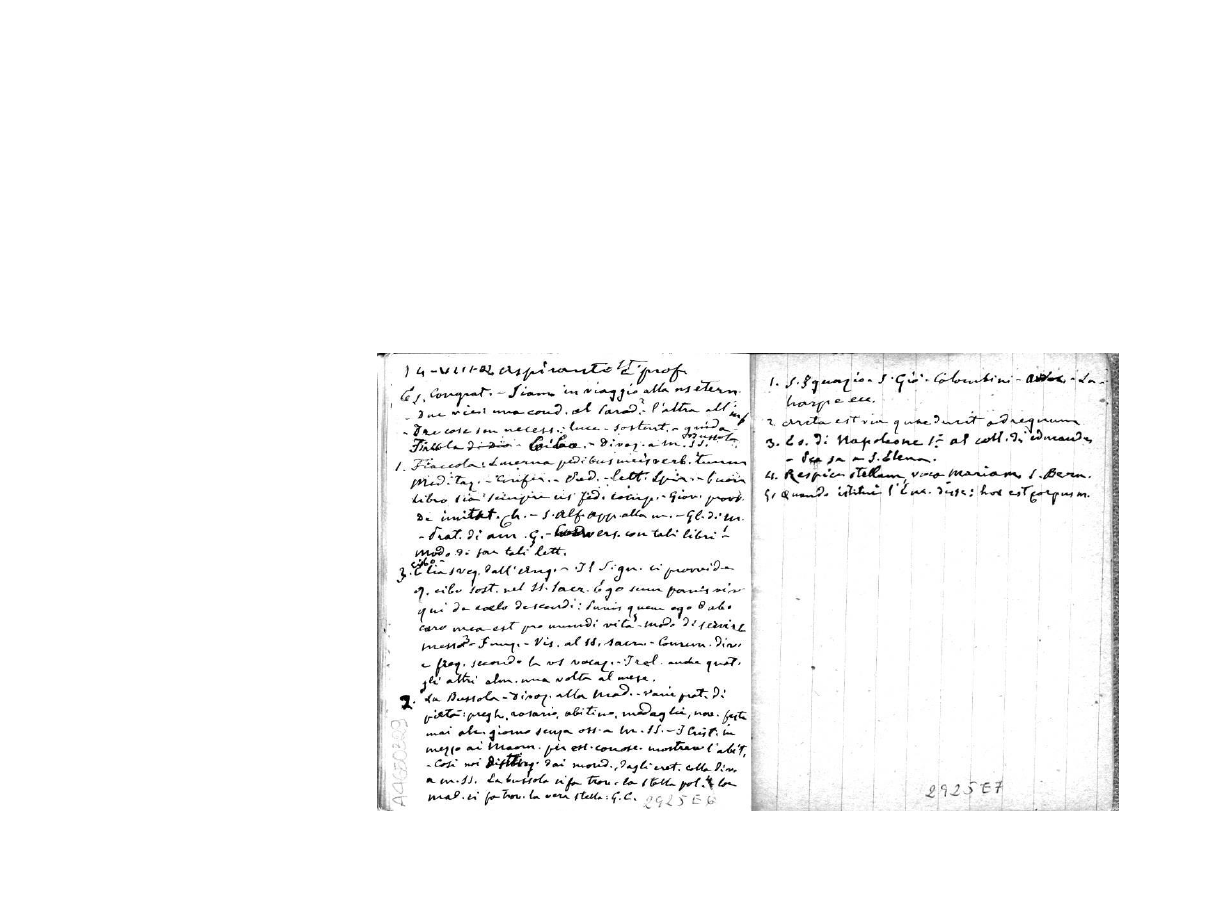 14-VIII-82 aspiranti e prof
Es. Congrat. - Siamo in viaggio alla ns etern.
- due vie: una cond. al Parad. l'altra all'inf
- Due cose son necess.: luce - sostent. - guida
Fiaccola di dio - Cibo - Divoz. a m. SS. Bussola
1. Fiaccola: Lucerna pedibus meis verb. tuum
meditaz. - Pred. - lett. Spir. - buon
libro sia sempre Giov. provv.
De imitat. Ch. - S. Alf. App. alla m. - Gl. di M.
- Prat. di am. G. - con tali libri -
modo di far tali lett.
3. Cibo - Elia sveg. dall'Ang. - Il Sign. ci provvide
q. cibo sost. nel SS. Sacr. Ego sum panis viv
qui de coelo descendi: Panis quem ego dabo
caro mea est pro mundi vita - modo di servire
messa - Vis. al SS. Sacra - Comun. div.
e freq. secondo la vs vocaz. -
gli altri alm. una volta al mese.
2. La Bussola - Divoz. alla Mad. - varie prat. di
pietà: pregh, rosario, abitino, medaglie, nov. feste
mai alc. giorno senza oss. a M. SS. - I Crist. in
mezzo ai Maom. per ess. conosc. mostran l'abit.
- Così noi disting. dai mond., dagli eret. colla div.
a m. SS. La bussola ci fa trov. la stella pol. La
mad. ci fa trov. la vera stella: G. C.
2925E6
AACE0223
1. S. Ignazio - S. Gio. Colombini - La-
harpe ecc.
2 arcta est via quae ducit ad regnum
3. Co. di Napoleone 1° al coll. di educande
- a S. Elena.
4. Respice stellam, voca Mariam S. Bern.
5. Quando istituì l'Euc. disse: hoc est corpus m.
2925E7